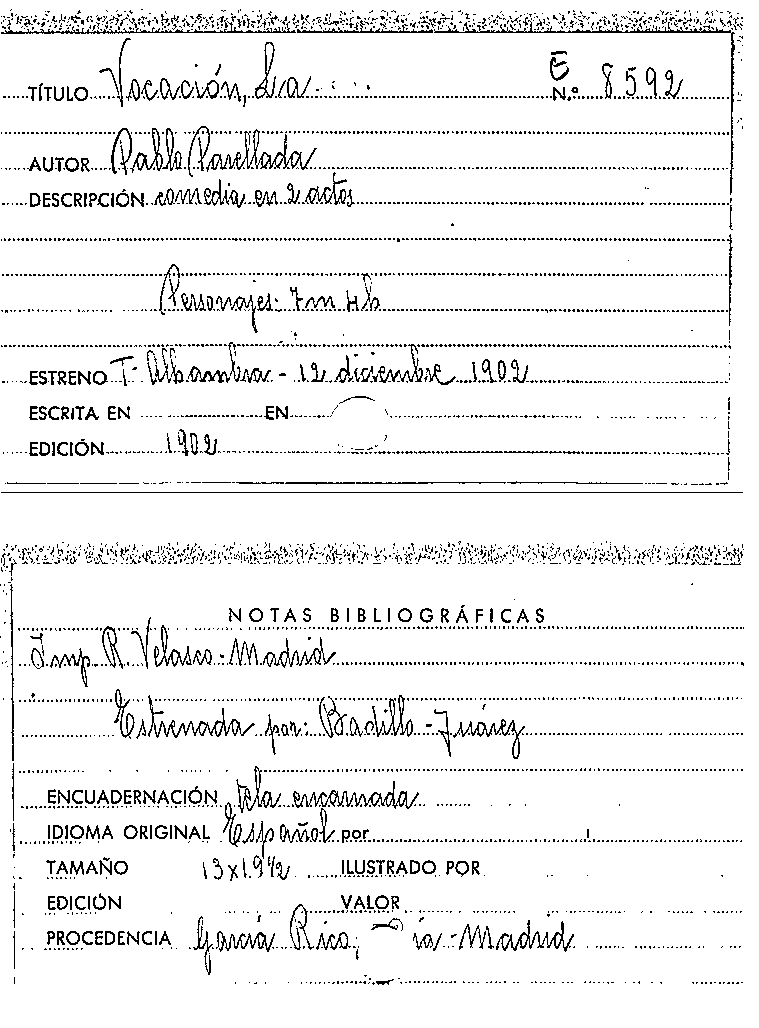 E
TÍTULO Vocación, La N.º 8592
AUTOR Pablo Parellada
DESCRIPCIÓN comedia en 2 actos
Personajes: 7m 4h
ESTRENO T. Alhambra - 12 diciembre 1902
ESCRITA EN EN
EDICIÓN 1902
NOTAS BIBLIOGRÁFICAS
Imp. R. Velasco - Madrid
Estrenada por: Badillo - Juárez
ENCUADERNACIÓN tela encarnada
IDIOMA ORIGINAL Español por
TAMAÑO 13x19½ ILUSTRADO POR
EDICIÓN VALOR
PROCEDENCIA García Rico, - Madrid